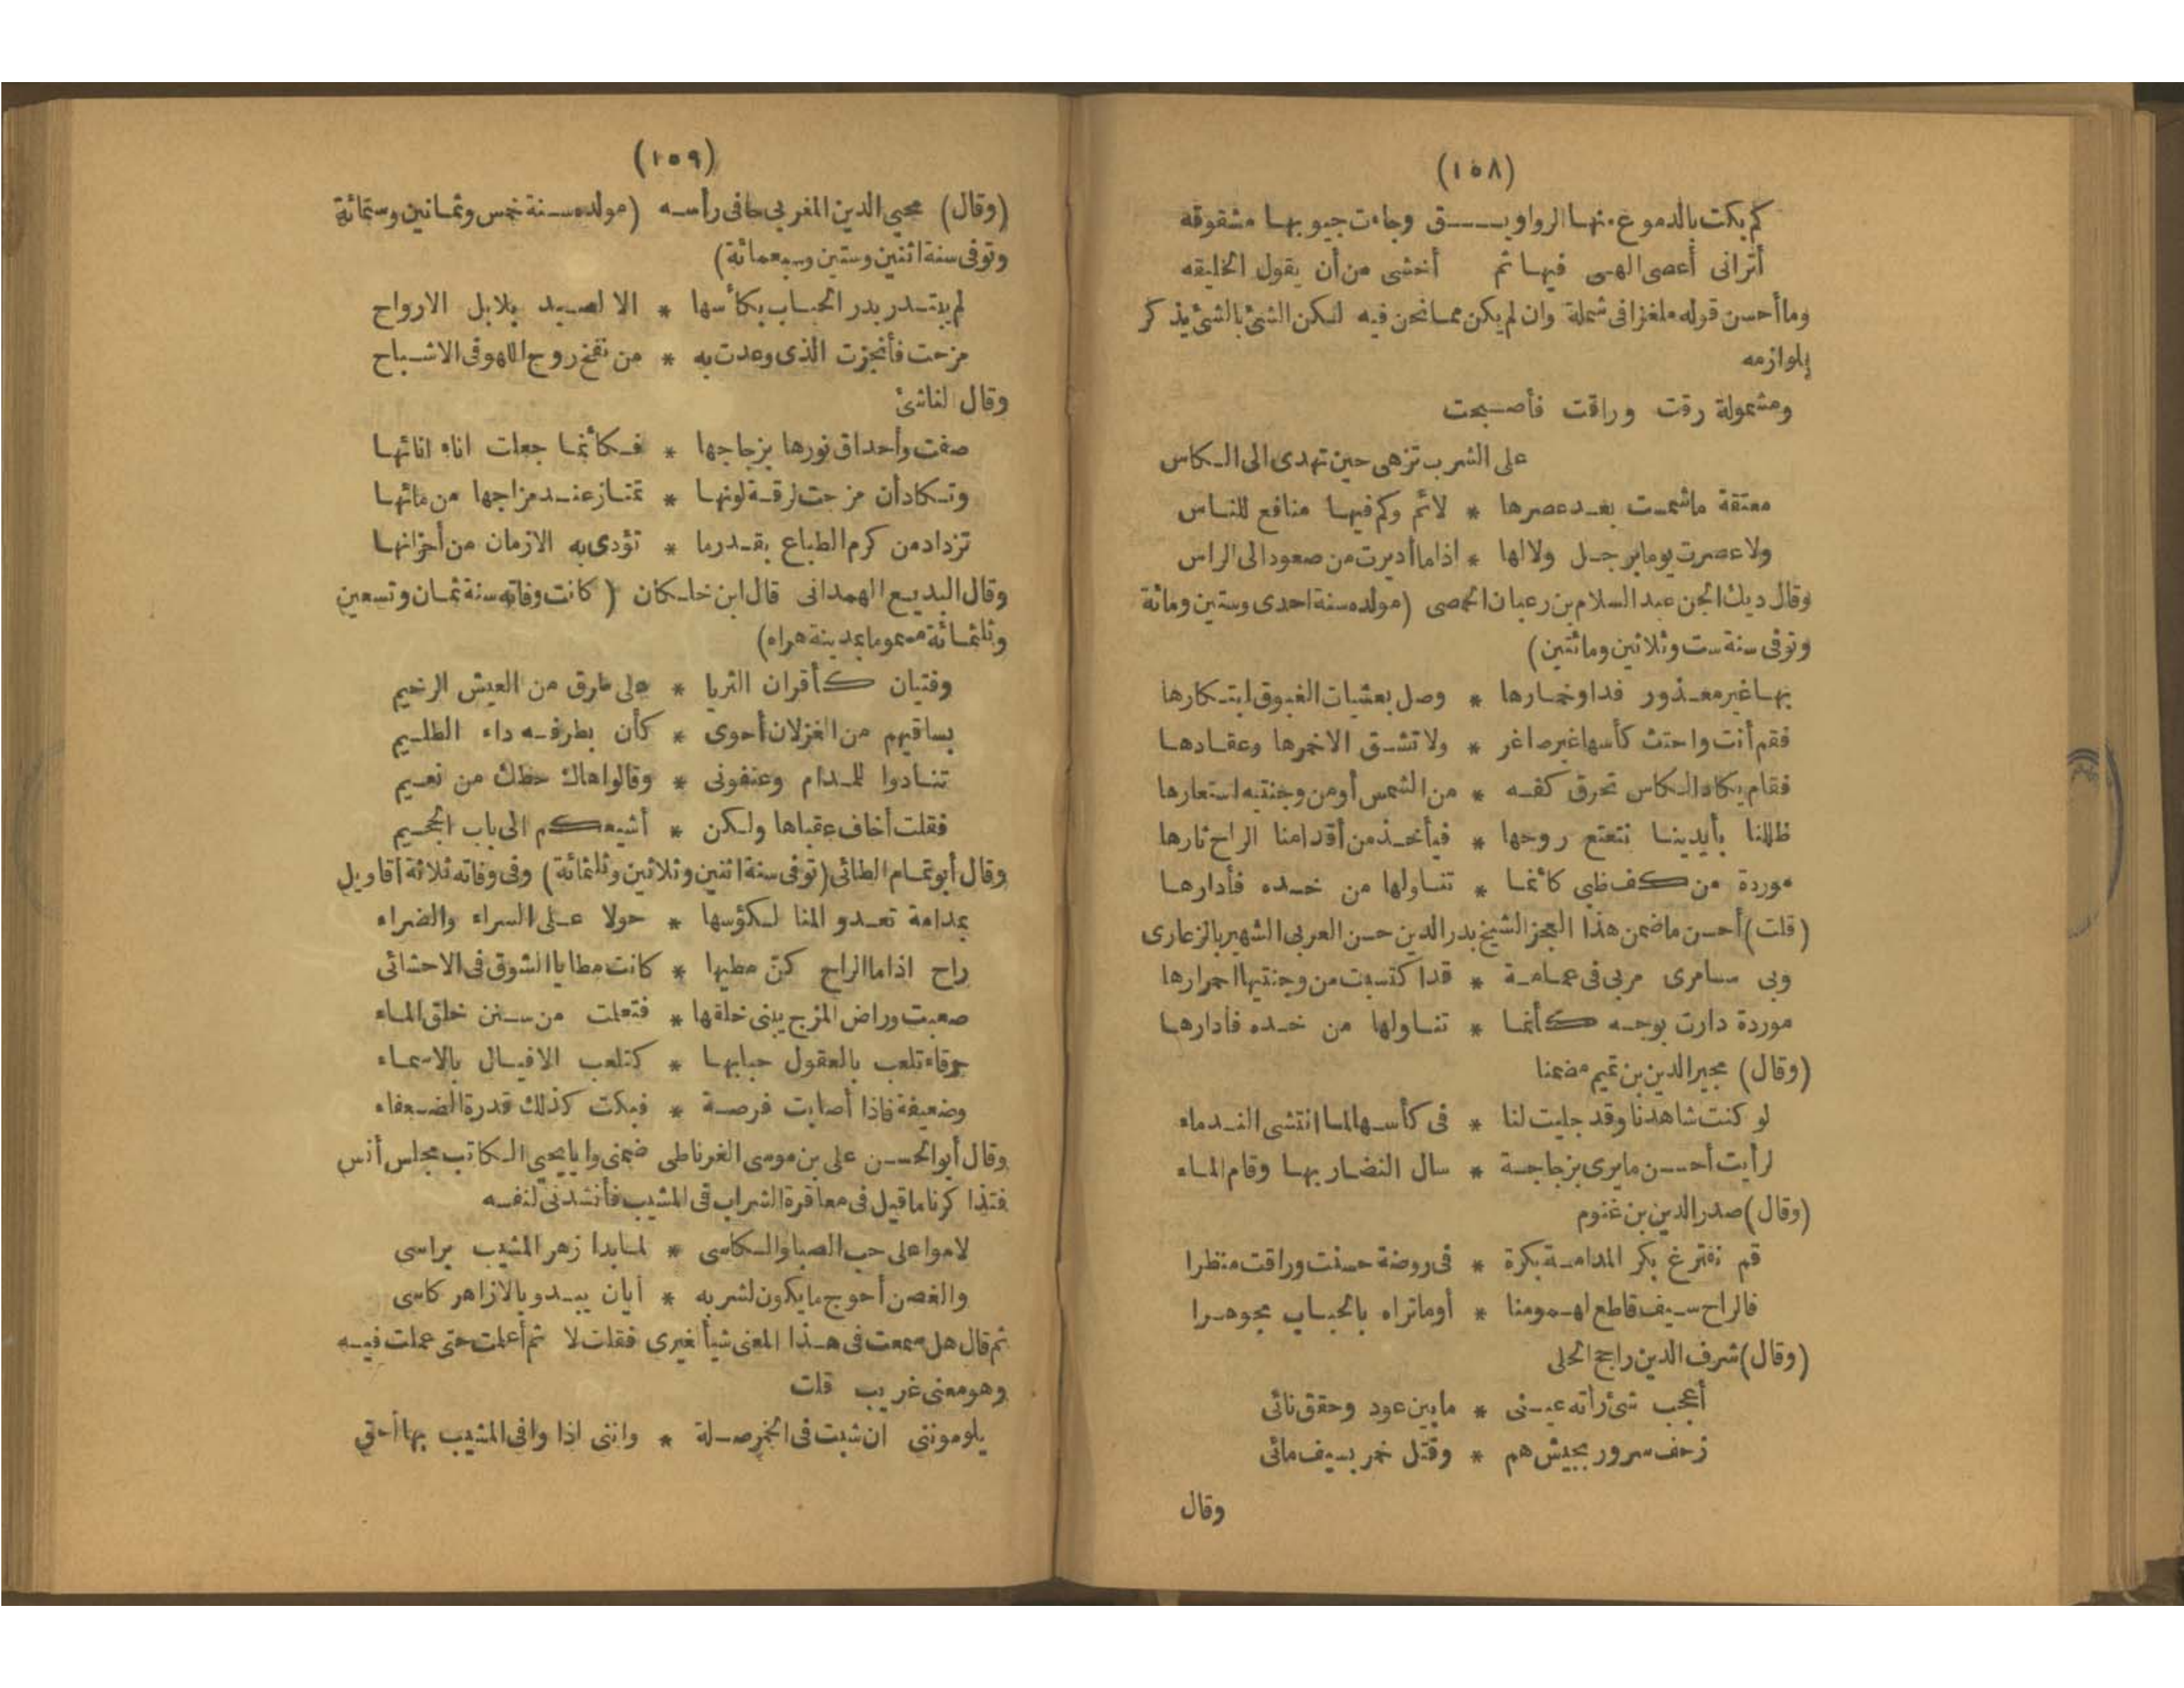 (١٥٨)
كم بكت بالدموع منها الرواويــــق وجاءت جيوبها مشقوقه
أترانى أعصى الهى فيها ثم أخشى من أن يقول الخليقه
وما أحسن قوله ملغزا فى شملة وان لم يكن مما نحن فيه لكن الشئ بالشئ يذكر
بلوازمه
ومشمولة رقت وراقت فأصبحت
على الشرب تزهى حين تهدى الى الكاس
معتقة ماشمت بعد عصرها * لاثم وكم فيها منافع للناس
ولا عصرت يوما برجل ولا لها * اذا ما أديرت من صعود الى الراس
وقال ديك الجن عبد السلام بن رعبان الحمصى (مولده سنة احدى وستين ومائة
وتوفى سنة ست وثلاثين ومائتين)
بها غير معذور فداو خمارها * وصل بعشيات الغبوق ابتكارها
فقم أنت واحثث كأسها غير صاغر * ولا تسق الا خمرها وعقادها
فقام يكاد الكاس تحرق كفه * من الشمس أو من وجنتيه استعارها
ظللنا بأيدينا نتعتع روحها * فيأخذ من أقدامنا الراح ثارها
موردة من كف ظبى كانما * تناولها من خده فأدارها
(قلت) أحسن ما ضمن هذا العجز الشيخ بدر الدين حسن العربى الشهير بالزغارى
وبى سامرى مربى فى عمامة * قد اكتسبت من وجنتيها احمرارها
موردة دارت بوجه كأنما * تناولها من خده فادارها
(وقال) مجير الدين بن تميم مضمنا
لو كنت شاهدنا وقد جليت لنا * فى كأسها لما انتشى الندماء
لرأيت أحسن ما يرى بزجاجة * سال النضار بها وقام الماء
(وقال) صدر الدين بن غنوم
قم نفترغ بكر المدامة بكرة * فى روضة حسنت وراقت منظرا
فالراح سيف قاطع لهمومنا * أو ما تراه بالحباب مجوهرا
(وقال) شرف الدين راجح الحلى
أعجب شئ رأته عينى * مابين عود وحقق نائى
زحف سرور بجيش هم * وقتل خمر بسيف مائى
وقال
(١٥٩)
(وقال) محيى الدين المغربى حافى رأسه (مولده سنة خمس وثمانين وستمائة
وتوفى سنة اثنين وستين وسبعمائة)
لم يبتدر بدر الحباب بكأسها * الا لصيد بلابل الارواح
مزحت فأنجزت الذى وعدت به * من نفخ روح اللهو فى الاشباح
وقال الناشئ
صفت وأحداق نورها بزجاجها * فكأنما جعلت اناء انائها
وتكاد أن مزجت لرقة لونها * تمتاز عند مزاجها من مائها
تزداد من كرم الطباع بقدر ما * تؤدى به الازمان من أجزائها
وقال البديع الهمدانى قال ابن خلكان (كانت وفاته سنة ثمان وتسعين
وثلثمائة مسموما بمدينة هراه)
وفتيان كأقران الثريا * على طرق من العيش الرخيم
بساقيهم من الغزلان أحوى * كأن بطرفه داء الظليم
تنادوا للمدام وعنفونى * وقالوا هاك حظك من نعيم
فقلت أخاف عقباها ولكن * أشيعكم الى باب الجحيم
وقال أبو تمام الطائى (توفى سنة اثنين وثلاثين وثلثمائة) وفى وفاته ثلاثة أقاويل
بمدامة تعدو المنا لكؤسها * حولا على السراء والضراء
راح اذا ما الراح كن مطيها * كانت مطايا الشوق فى الاحشائى
صعبت وراض المزج يبنى خلقها * فتعلمت من سنن خلق الماء
جرقاء تلعب بالعقول حبابها * كتلعب الافيال بالاسماء
وضعيفة فاذا أصابت فرصة * فبكت كذلك قدرة الضعفاء
وقال أبو الحسن على بن موسى الغرناطى ضمنى وايا يحيى الكاتب مجلس أنس
فتذاكرنا ما قيل فى معاقرة الشراب فى المشيب فأنشدنى لنفسه
لاموا على حب الصبا والكاسى * لما بدا زهر المشيب براسى
والغصن أحوج ما يكون لشربه * أيان يبدو بالازاهر كاسى
ثم قال هل سمعت فى هذا المعنى شيأ لغيرى فقلت لا ثم أعملت حتى عملت فيه
وهو معنى غريب قلت
يلوموننى ان شبت فى الخمر صلة * واننى اذا وافى المشيب بها أحق